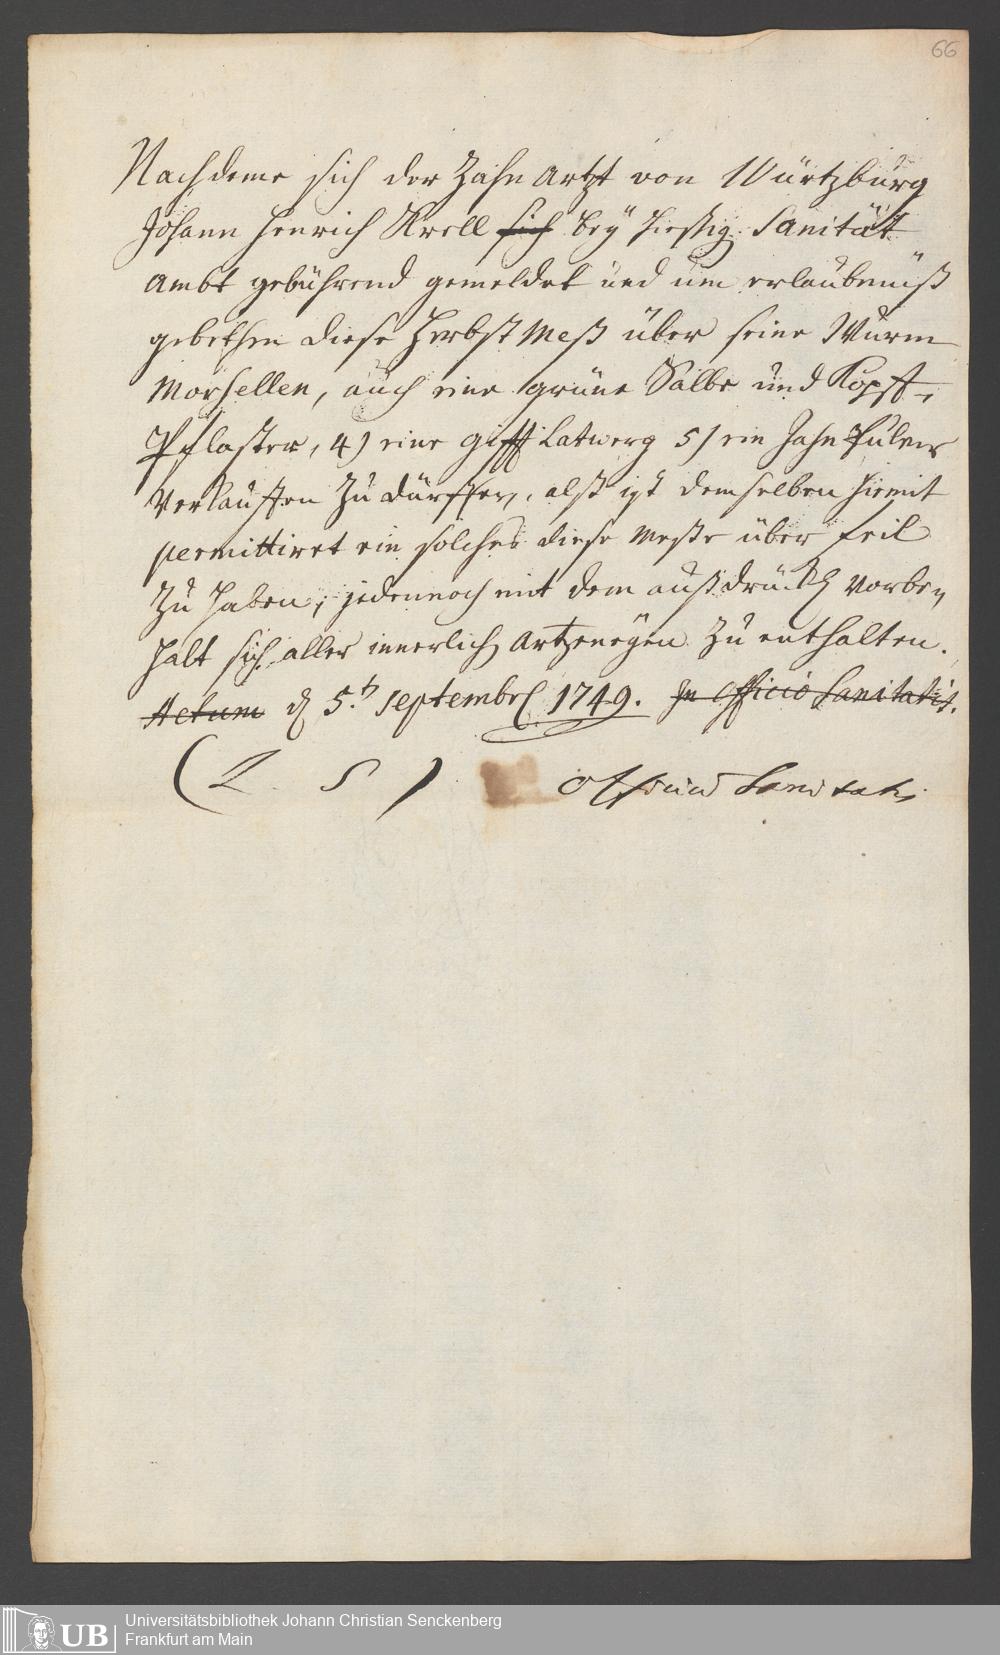 66
Nachdeme sich der Zahn Artzt von Würtzburg
Johann Henrich Krell sich bey hiesig. Sanität
Ambt gebührend gemeldet und um erlaubnüß
gebethen diese Herbst Meß über seine Wurm
Morsellen, auch eine grüne Salbe und Kopff-
Pflaster, 4) eine Gifft Latwerg 5) ein Zahn Pulver
Verkauffen Zu dürffen, alß ist demselben hiemit
permittiret ein solches diese Messe über feil
Zu haben, jedennoch mit dem außdrückl Vorbe-
halt sich aller innerlich Artzeneyen Zu enthalten.
Actum d 5.t Septembr 1749. In Officio Sanitatis.
(L. S)
Officiu Sanitatis
Universitätsbibliothek Johann Christian Senckenberg
Frankfurt am Main
UB